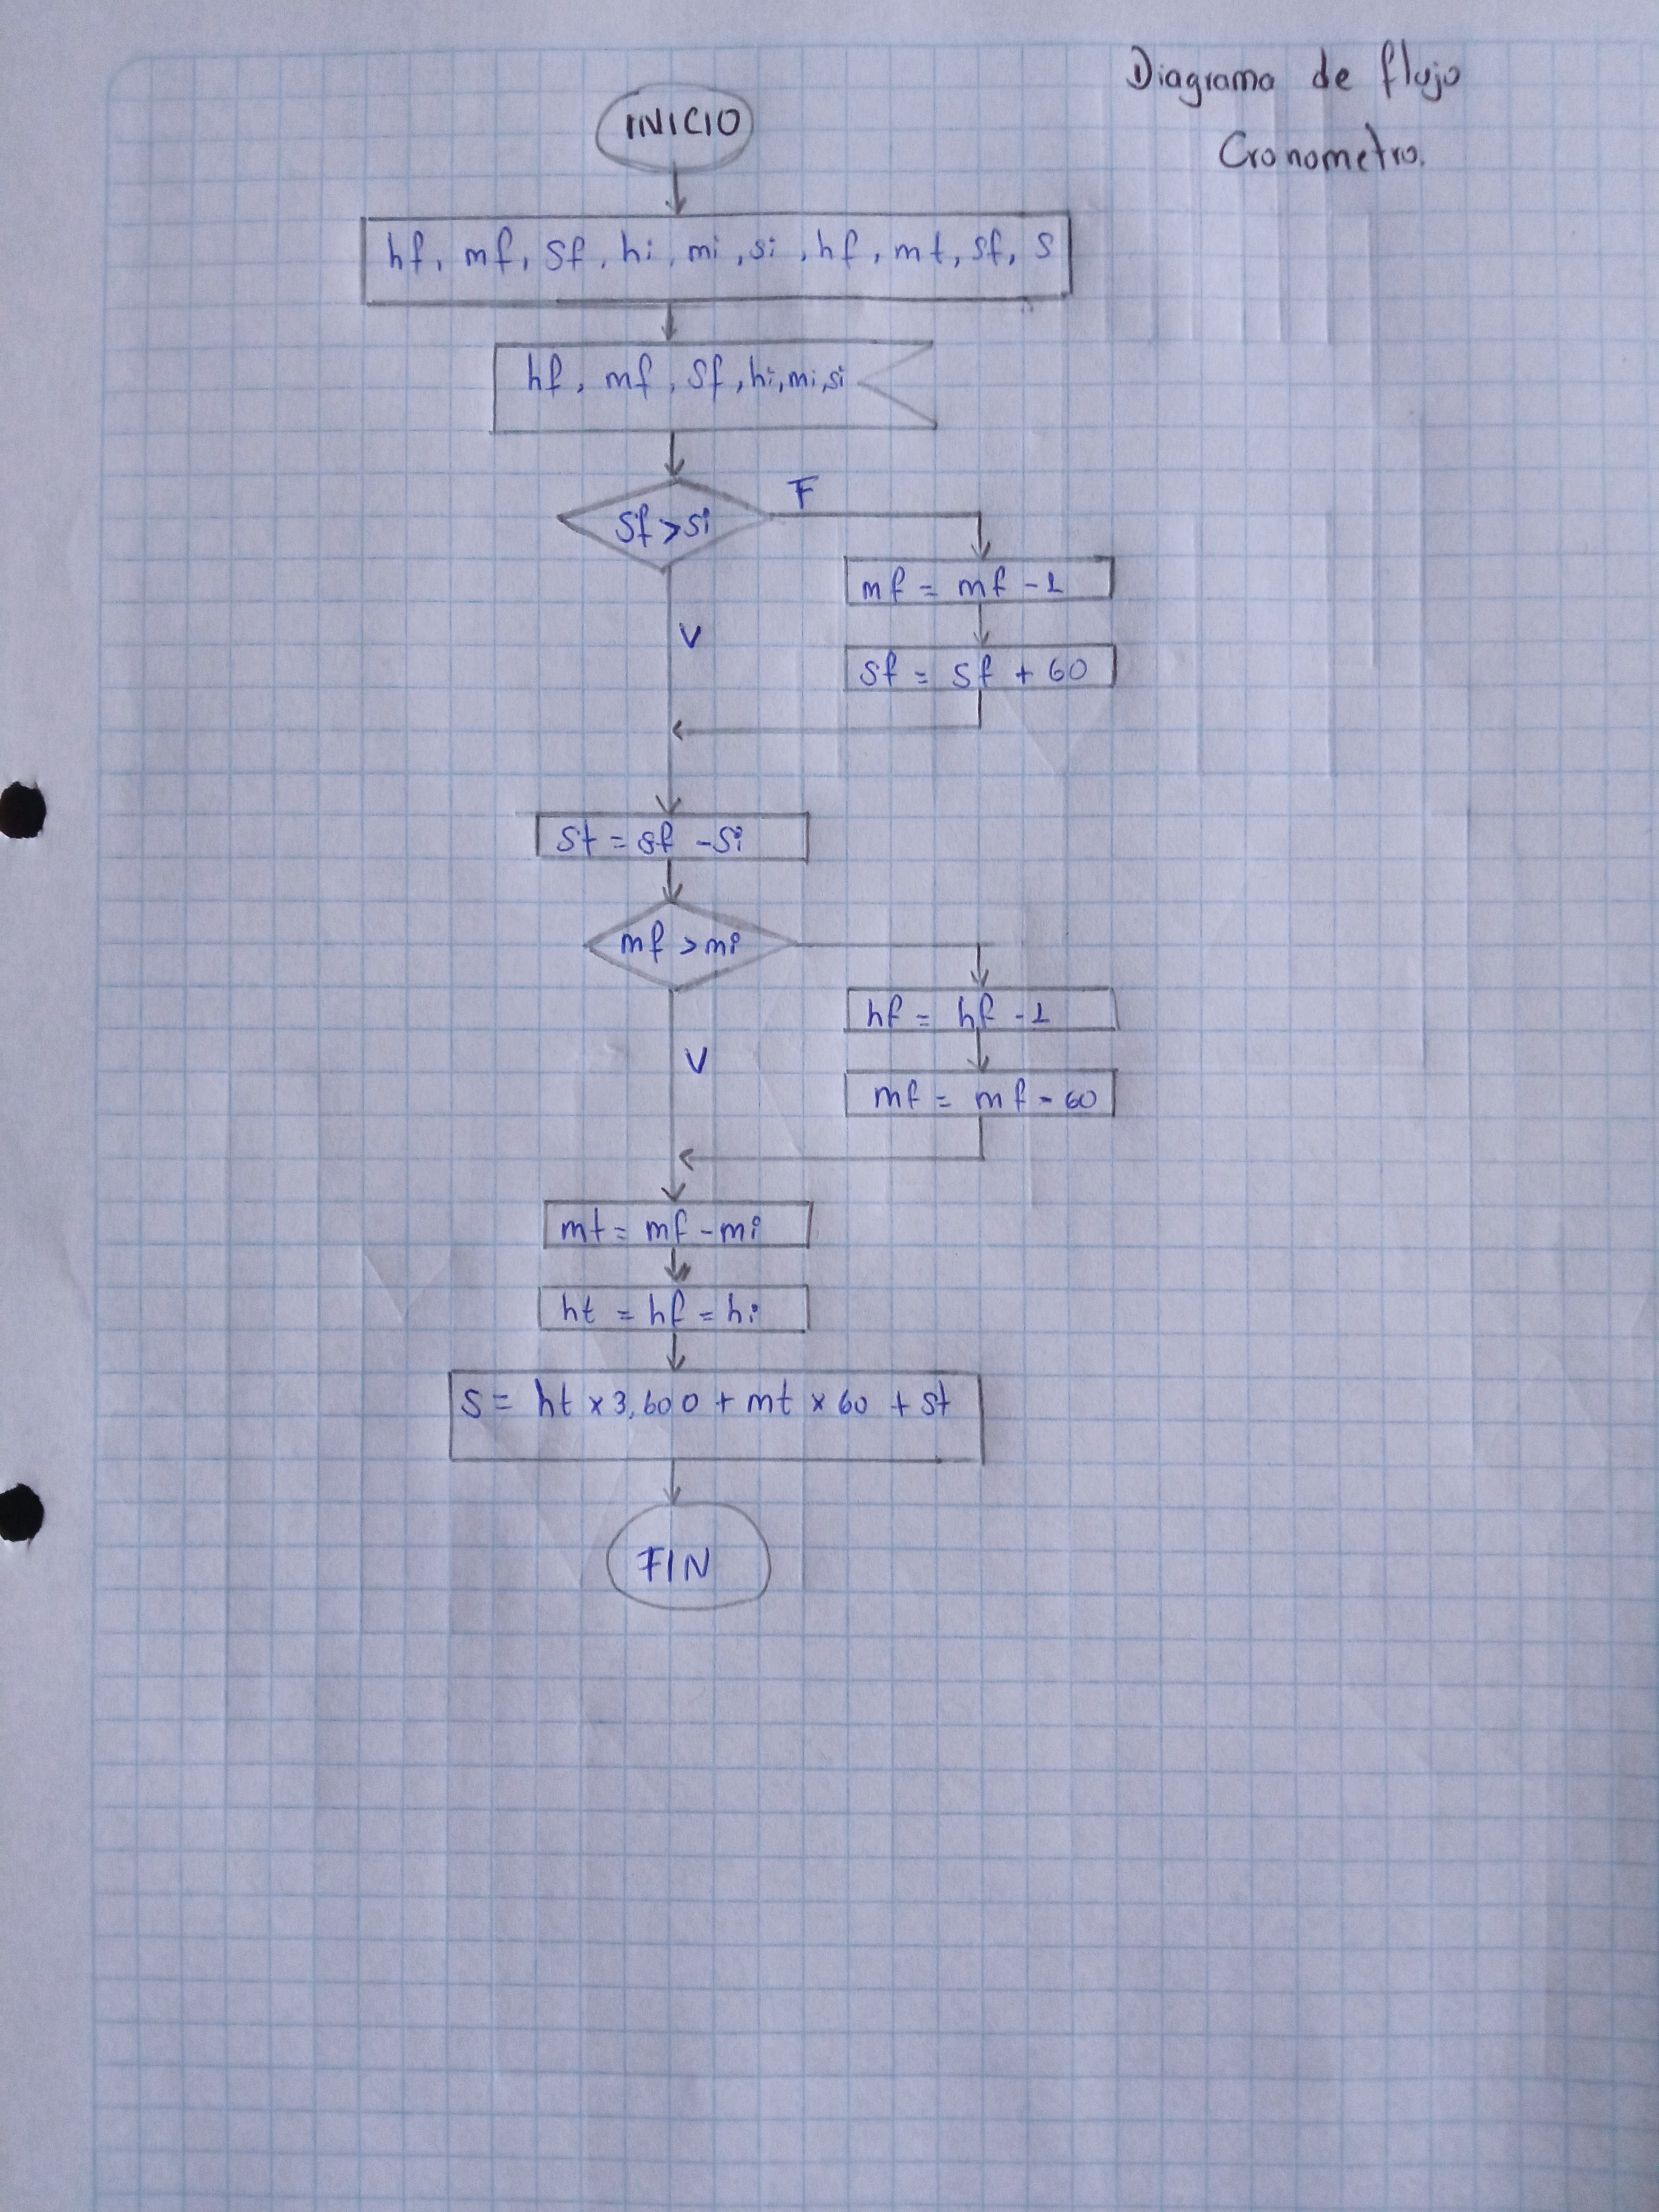 Diagrama de flujo
Cronometro.
INICIO
hf, mf, sf, hi, mi, si, hf, mt, sf, s
hf, mf, sf, hi, mi, si
sf > si
F
mf = mf - 1
V
sf = sf + 60
st = sf - si
mf > mi
hf = hf - 1
V
mf = mf - 60
mt = mf - mi
ht = hf = hi
s = ht x 3,600 + mt x 60 + st
FIN